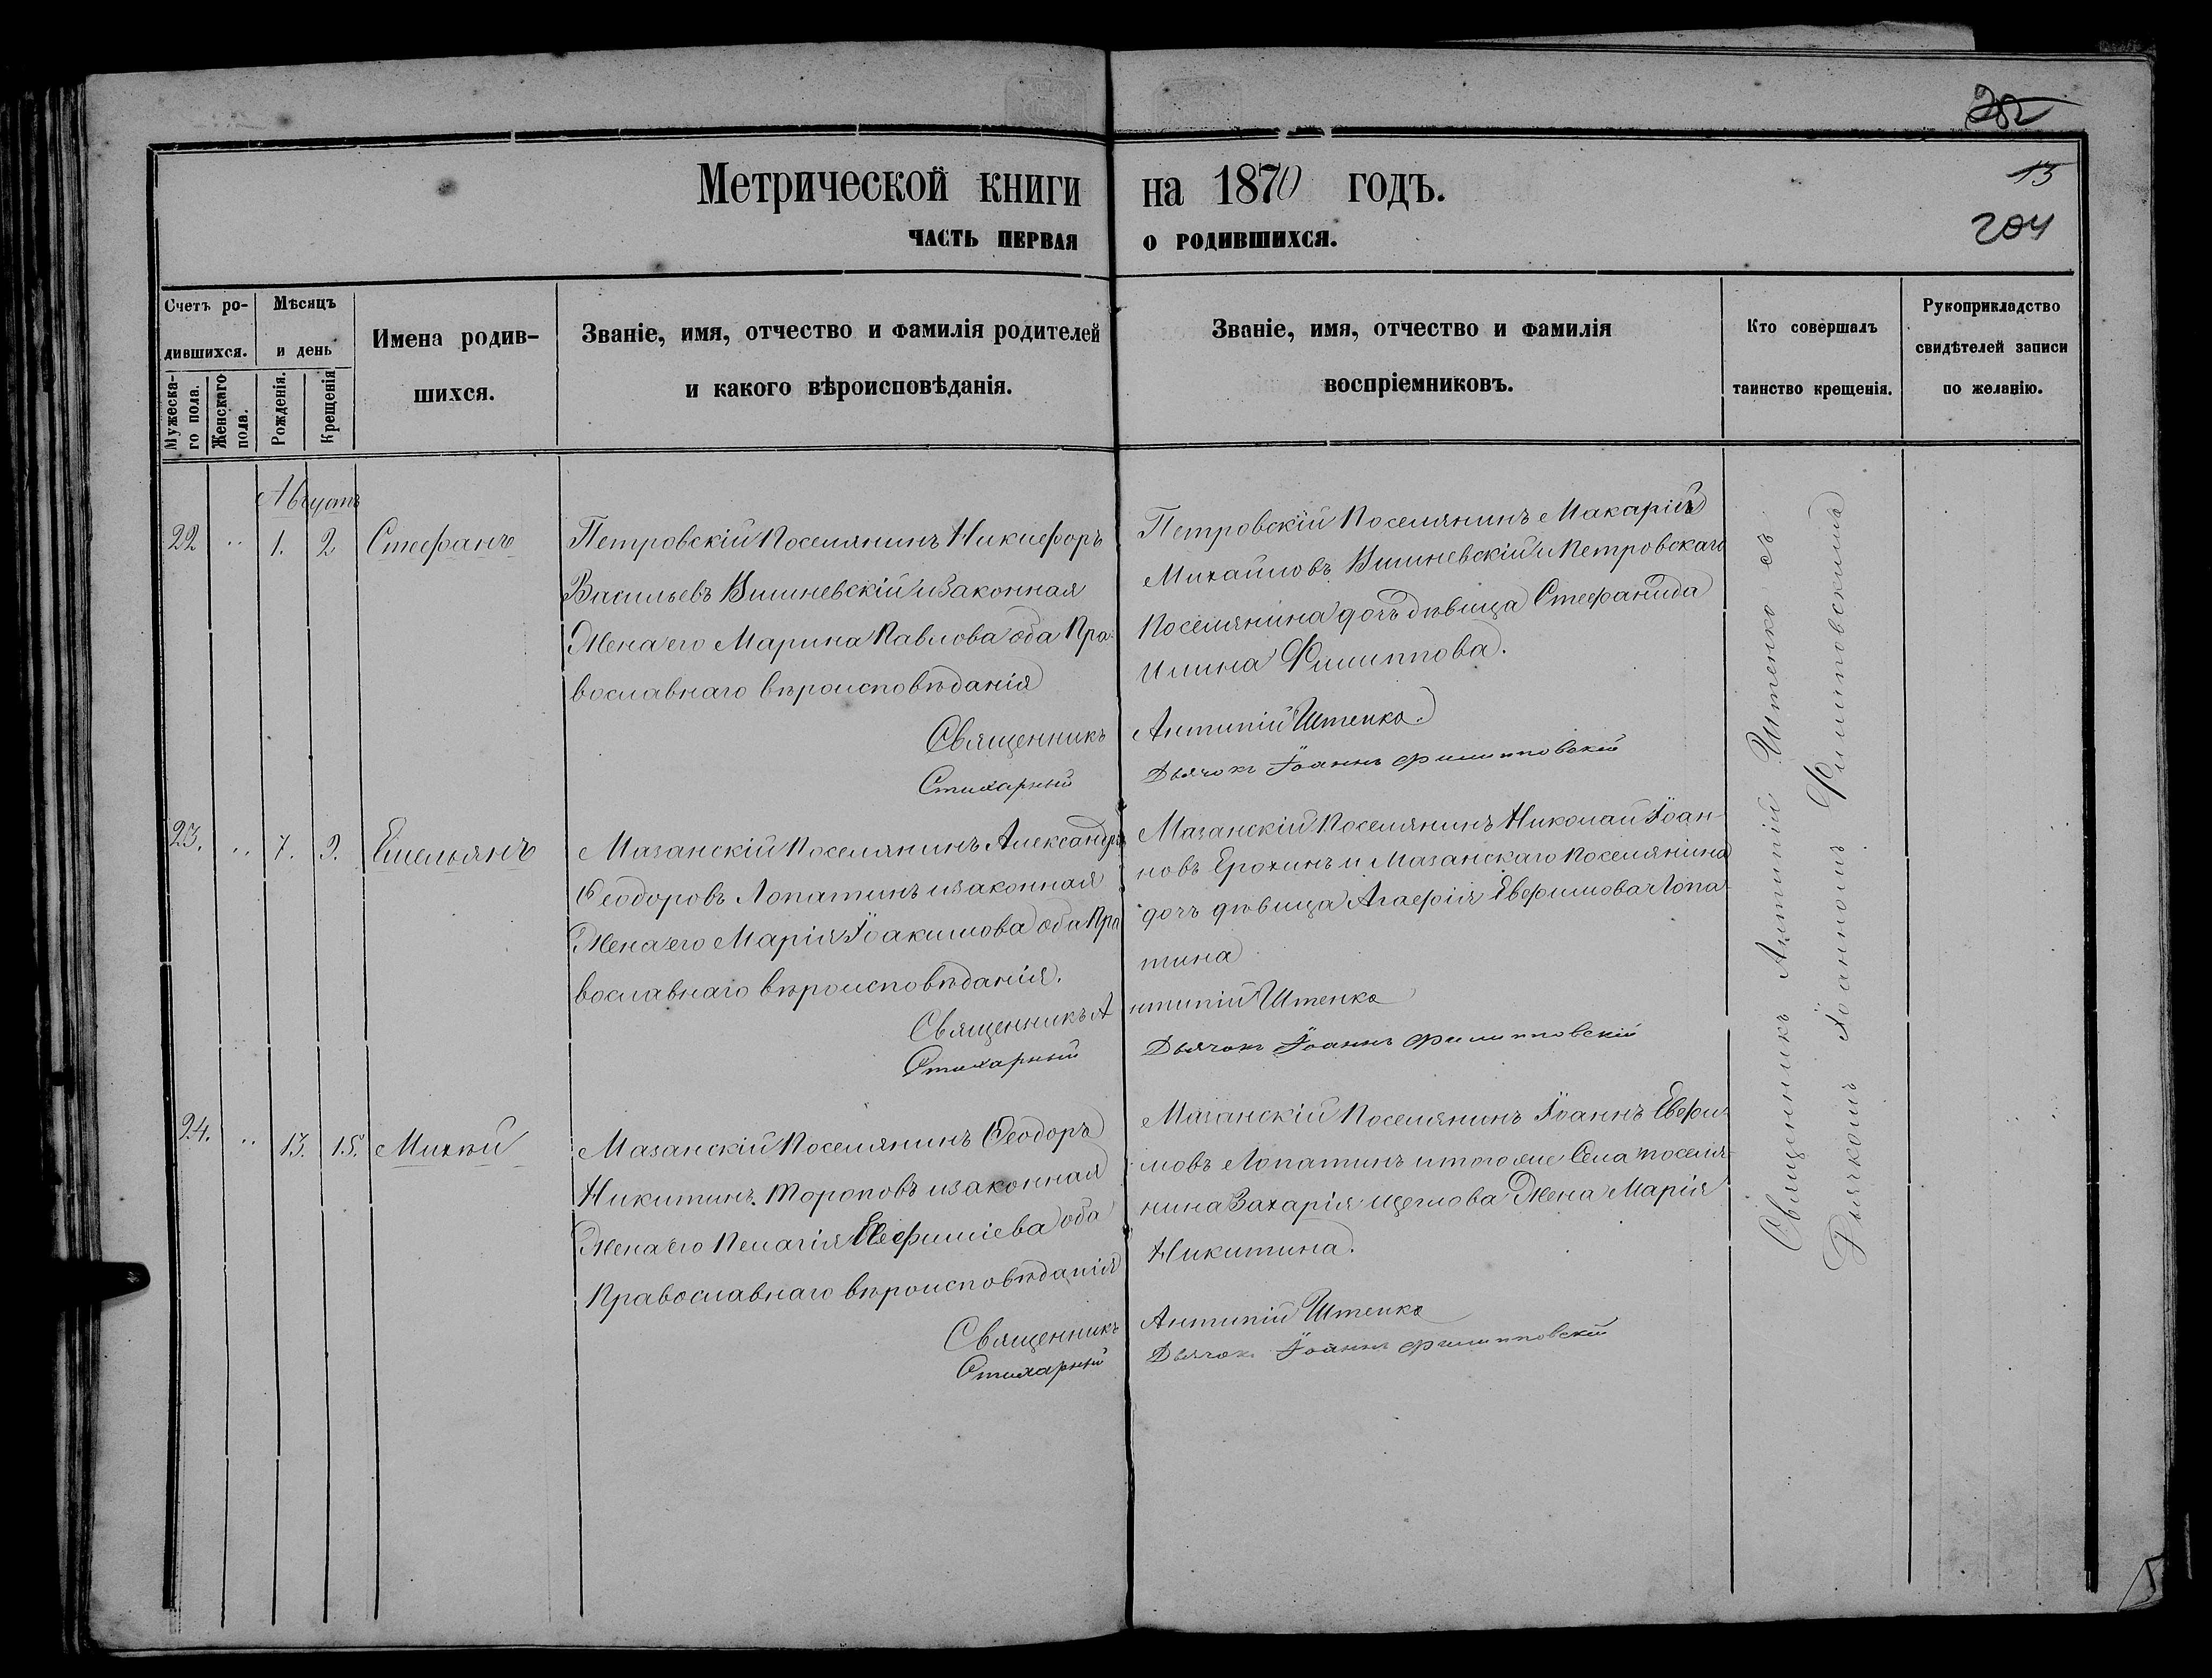 13
204
Метрической книги на 1870 годъ.
ЧАСТЬ ПЕРВАЯ О РОДИВШИХСЯ.
Счетъ ро-
дившихся.
Мужеска-
го пола.
Женскаго
пола.
Мѣсяцъ
и день
Рожденія.
Крещенія
Имена родив-
шихся.
Званіе, имя, отчество и фамилія родителей
и какого вѣроисповѣданія.
Званіе, имя, отчество и фамилія
воспріемниковъ.
Кто совершалъ
таинство крещенія.
Рукоприкладство
свидѣтелей записи
по желанію.
Августъ
22 " 1. 2 Стефанъ
Петровскій Поселянинъ Никифоръ
Васильевъ Вишневскій и законная
Жена его Марина Павлова оба Пра-
вославнаго вѣроисповѣданія
Петровскій Поселянинъ Макарій
Михайловъ Вишневскій и Петровскаго
Поселянина дочь дѣвица Стефанида
Илина Филиппова.
Священникъ Антипій Штепко.
Стихарный Дьячокъ Іоаннъ Филипповскій
23. " 7. 9. Емельянъ
Мазанскій Поселянинъ Александръ
Ѳеодоровъ Лопатинъ и законная
Жена его Марія Іоакимова оба Пра
вославнаго вѣроисповѣданія.
Мазанскій Поселянинъ Николай Іоан-
новъ Ерохинъ и Мазанскаго Поселянина
дочь дѣвица Агафія Евфимова Лопа-
тина
Священникъ Антипій Штепко
Стихарный Дьячокъ Іоаннъ Филипповскій
24. " 13. 15. Михѣй
Мазанскій Поселянинъ Ѳеодоръ
Никитинъ Тороповъ и законная
Жена его Пелагія Евфиміева оба
Православнаго вѣроисповѣданія
Мазанскій Поселянинъ Іоаннъ Евфи-
мовъ Лопатинъ и того же Села поселя-
нина Захарія Щеглова Жена Марія
Никитина.
Священникъ Антипій Штепко
Стихарный Дьячокъ Іоаннъ Филипповскій
Священникъ Антипій Штепко съ
Дьячкомъ Іоанномъ Филипповскимъ